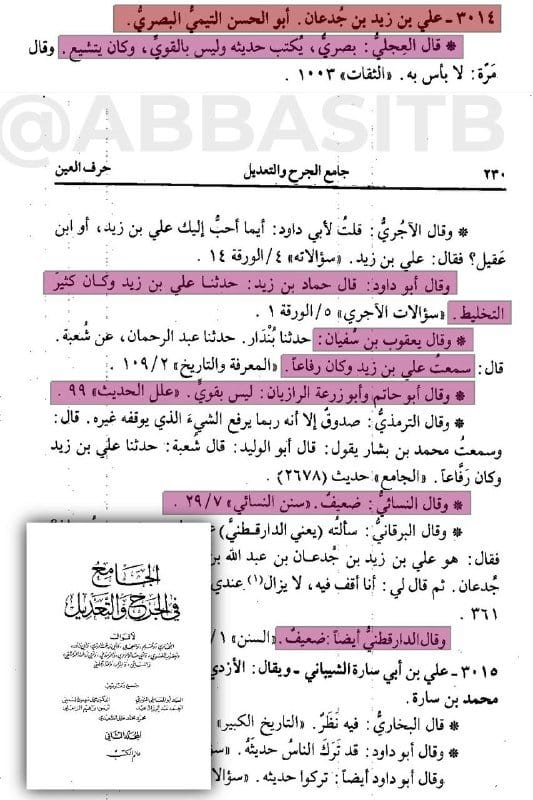 ٣٠١٤ - علي بن زيد بن جُدعان. أبو الحسن التيميُّ البصريُّ.
* قال العِجليُّ: بصريٌّ، يُكتب حديثه وليس بالقويِّ، وكان يتشيع. وقال
مَرّة: لا بأس به. «الثقات» ١٠٠٣.
@ABBASITB
٢٣٠ جامع الجرح والتعديل حرف العين
* وقال الآجريُّ: قلتُ لأبي داود: أيما أحبُّ إليك علي بن زيد، أو ابن
عَقيل؟ فقال: علي بن زيد. «سؤالاته» ٤/الورقة ١٤.
وقال أبو داود: قال حماد بن زيد: حدثنا علي بن زيد وكان كثيرَ
التخليط. «سؤالات الآجري» ٥/الورقة ١.
* وقال يعقوب بن سُفيان: حدثنا بُنْدَار. حدثنا عبد الرحمان، عن شُعبة.
قال: سمعتُ علي بن زيد وكان رفاعاً. «المعرفة والتاريخ» ١٠٩/٢.
* وقال أبو حاتم وأبو زرعة الرازيان: ليس بقويٍّ. «علل الحديث» ٩٩.
* وقال الترمذيُّ: صدوقٌ إلا أنه ربما يرفع الشيءَ الذي يوقفه غيره. قال:
وسمعتُ محمد بن بشار يقول: قال أبو الوليد: قال شُعبة: حدثنا علي بن زيد
وكان رَفَّاعاً. «الجامع» حديث (٢٦٧٨).
* وقال النسائيُّ: ضعيفٌ. «سنن النسائي» ٢٩/٧.
* وقال البرقانيُّ: سألتُه (يعني الدارقطنيَّ)
فقال: هو علي بن زيد بن جُدعان بن عبد الله بن
جُدعان. ثم قال لي: أنا أقف فيه، لا يزال(١) عندي
٣٦١.
وقال الدارقطنيُّ أيضاً: ضعيفٌ. «السنن» ١/
٣٠١٥ - علي بن أبي سارة الشيباني - ويقال: الأزدي
محمد بن سارة.
* قال البخاريُّ: فيه نَظَرٌ. «التاريخ الكبير»
* وقال أبو داود: قد تَرَكَ الناسُ حديثَهُ.
وقال أبو داود أيضاً: تركوا حديثه.
الجامع
في الجرح والتعديل
لأقوال
المجلد الثاني
عالم الكتب